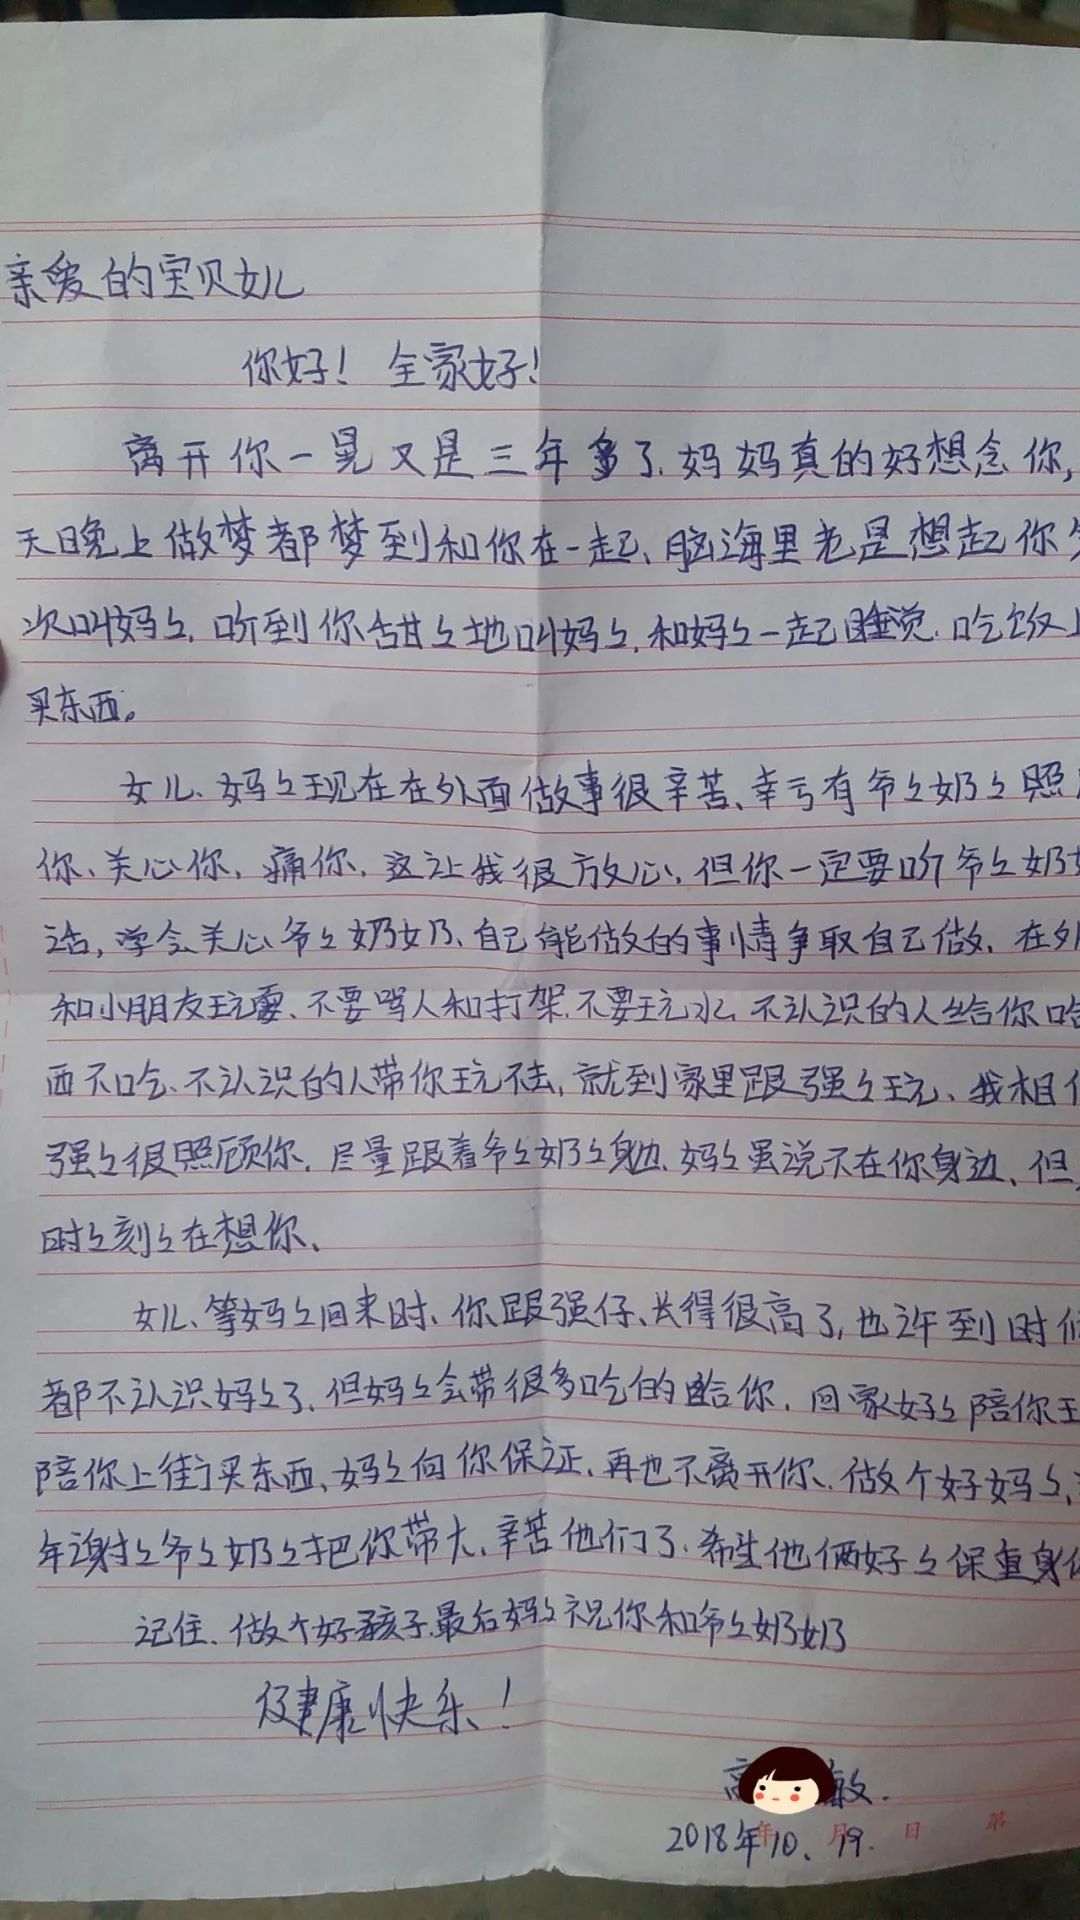 亲爱的宝贝女儿
你好！ 全家好！
离开你一晃又是三年多了、妈妈真的好想念你，
天晚上做梦都梦到和你在一起、脑海里老是想起你
次叫妈々，听到你甜々地叫妈々，和妈々一起睡觉、吃饭上
买东西。
女儿、妈々现在在外面做事很辛苦、幸亏有爷々奶々照
你、关心你，痛你，这让我很放心，但你一定要听爷々奶
话，学会关心爷々奶奶、自己能做的事情争取自己做、在外
和小朋友玩耍、不要骂人和打架、不要玩水、不认识的人给你
西不吃、不认识的人带你玩不去，就到家里跟强々玩、我相信
强々很照顾你，尽量跟着爷々奶々身边、妈々虽说不在你身边、但
时々刻々在想你、
女儿、等妈々回来时、你跟强仔、长得很高了，也许到时候
都不认识妈々了、但妈々会带很多吃的给你，回家好々陪你玩
陪你上街买东西、妈々向你保证、再也不离开你、做个好妈々、
年谢々爷々奶々把你带大、辛苦他们了、希望他俩好々保重身体
记住、做个好孩子、最后妈々祝你和爷々奶奶
健康快乐！
高 敏.
2018年10、19.
年 月 日 第